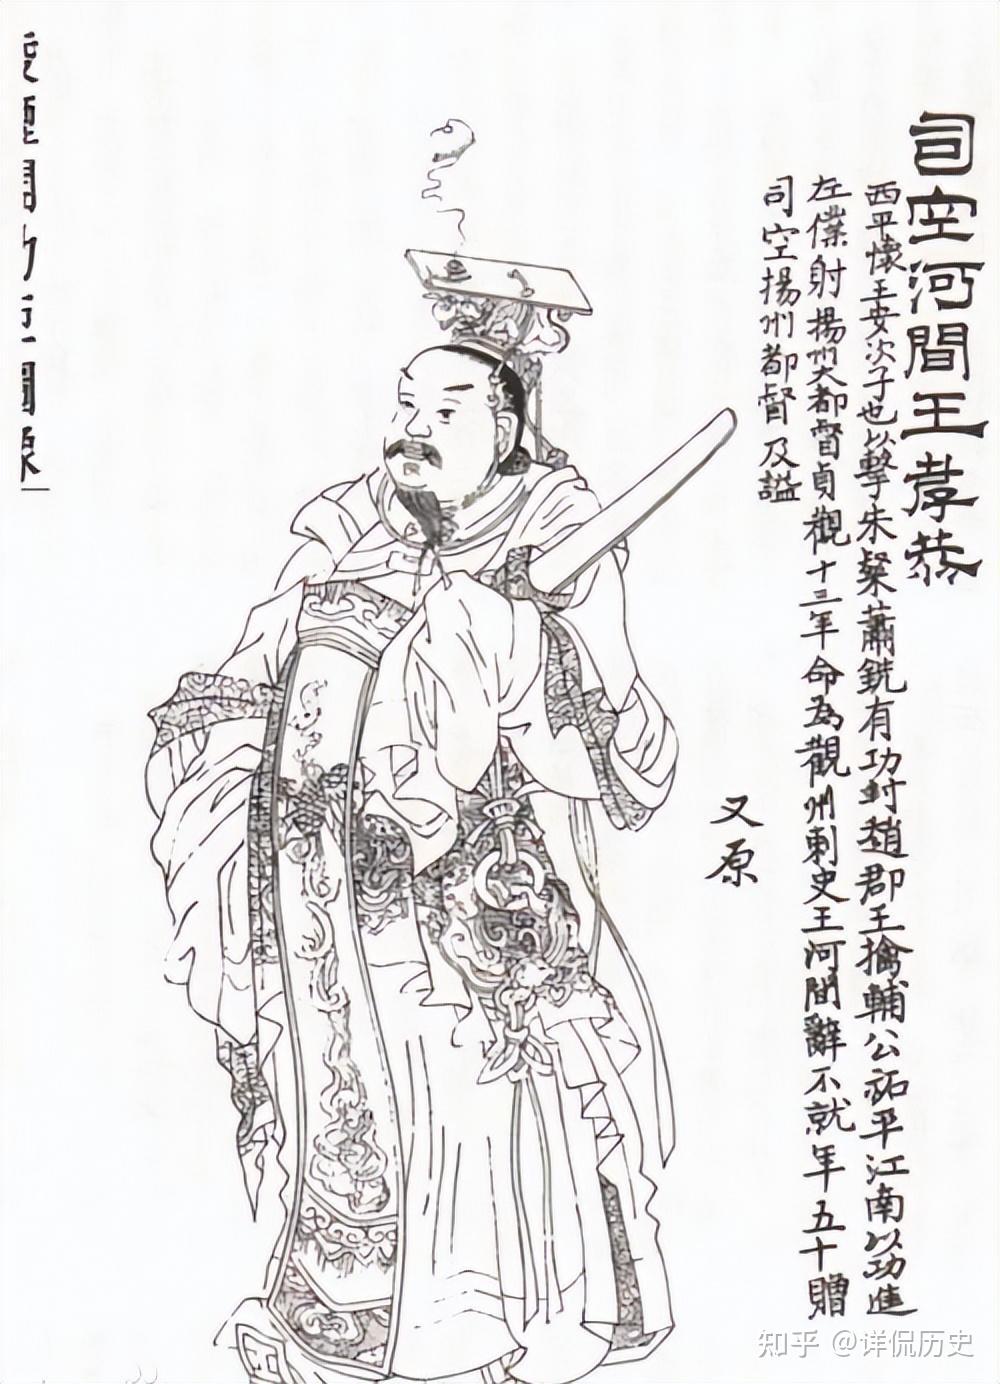 司空河間王孝恭
西平懷王安次子也以擊朱粲蕭銑有功封趙郡王擒輔公祏平江南以功進
左僕射揚州大都督貞觀十三年命為觀州刺史王河間辭不就年五十贈
司空揚州都督及謚
又原
知乎 @详侃历史